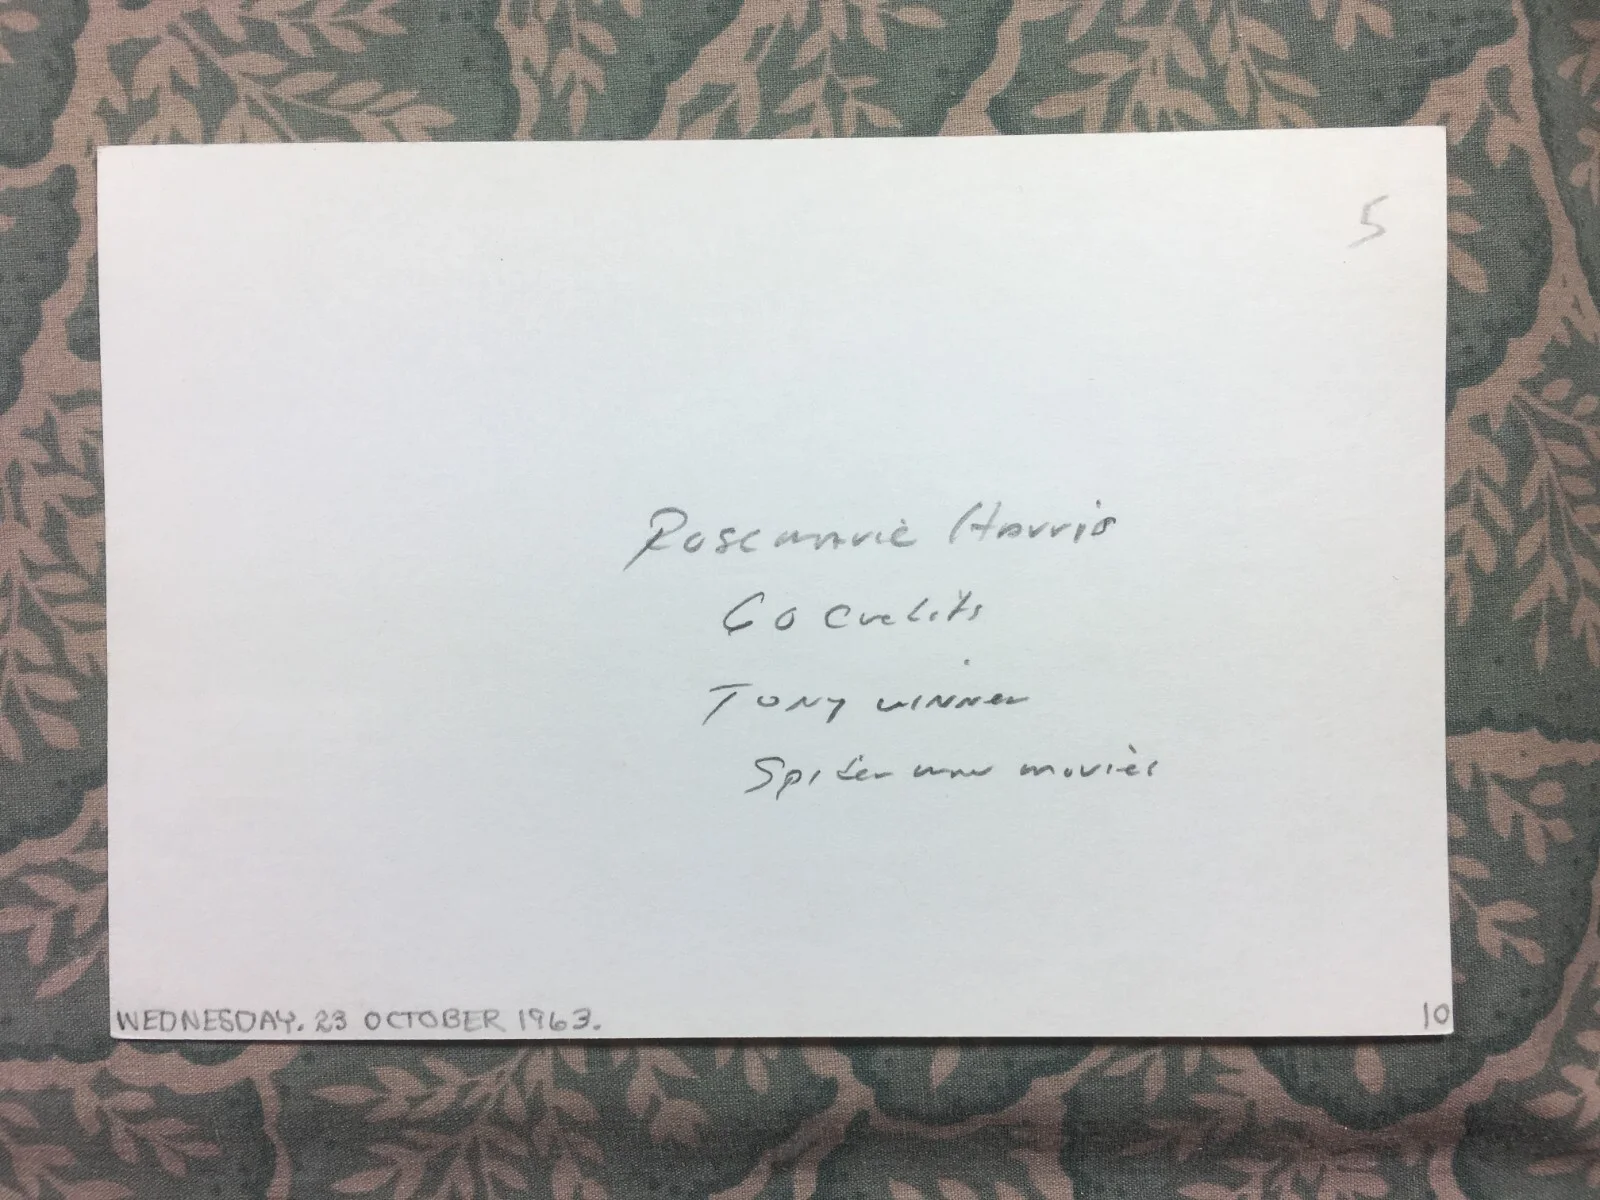 5
Rosemarie Harris
60 credits
Tony winner
Spider man movies
WEDNESDAY. 23 OCTOBER 1963.
10